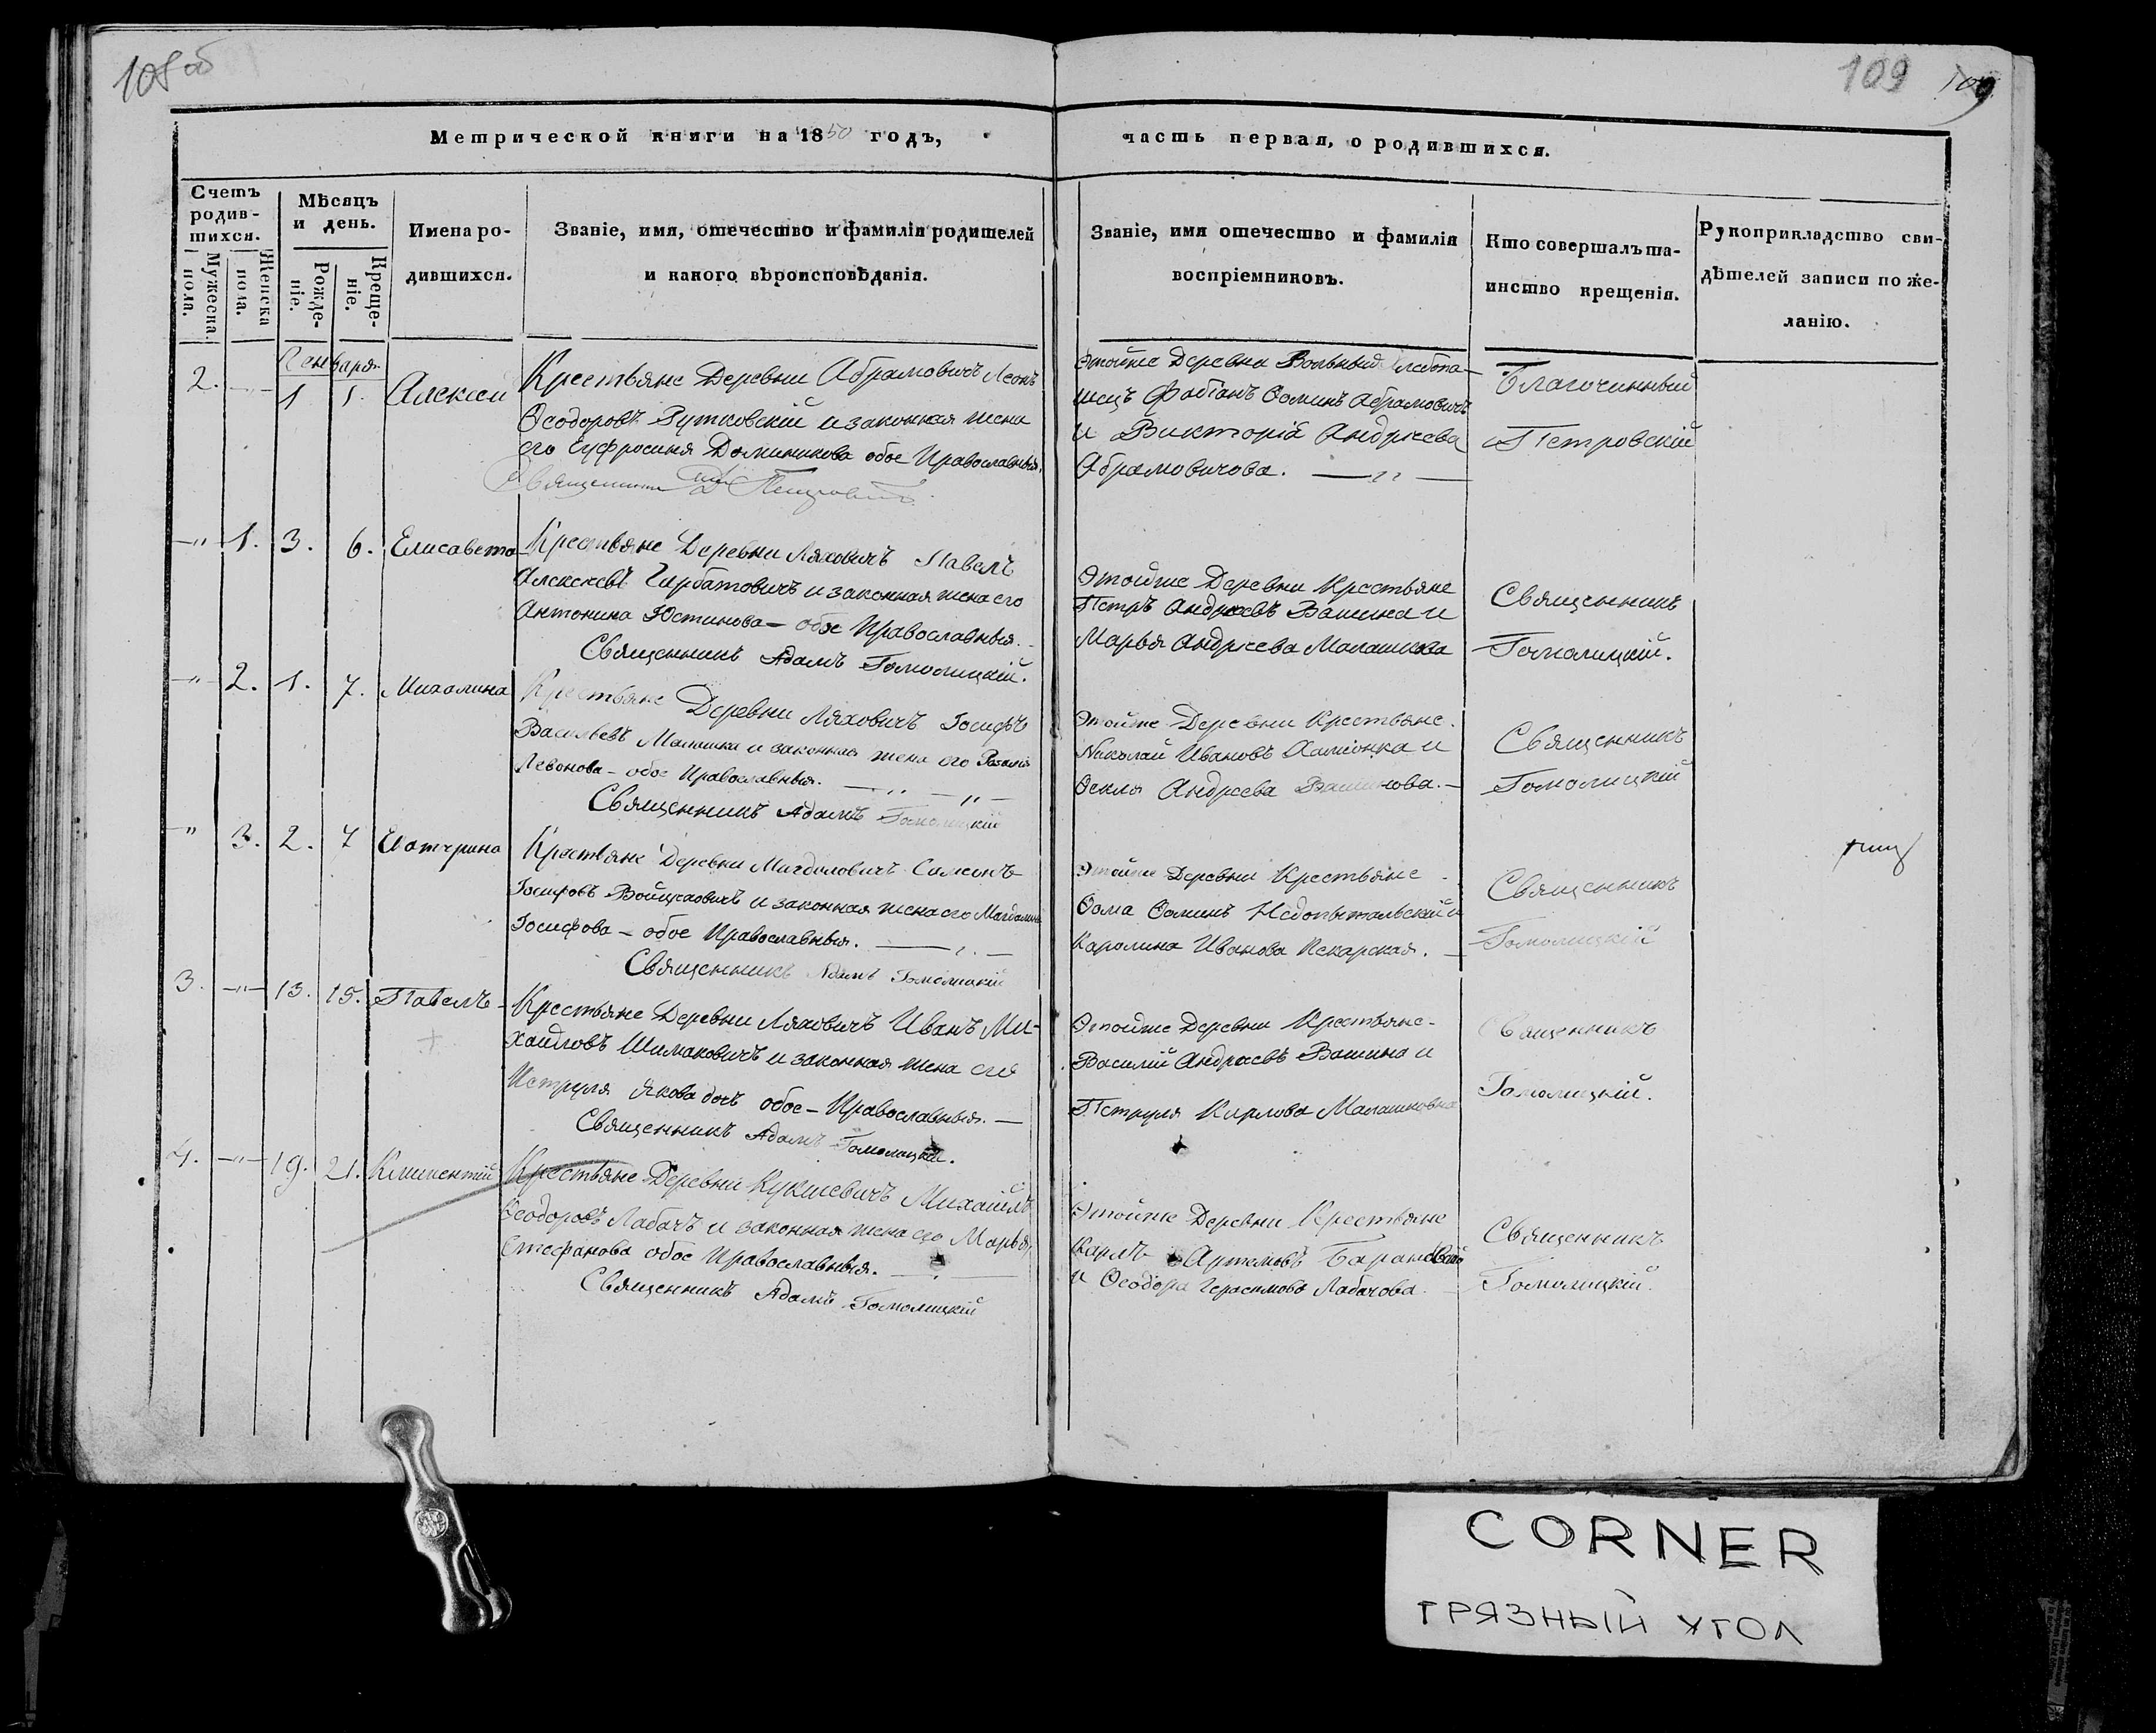 108 об
109 109
Метрической книги на 1850 годъ,
часть первая, о родившихся.
Счетъ родив-шихся.
Мужеска пола.
Женска пола.
Мѣсяцъ и день.
Рожде-ніе.
Креще-ніе.
Имена ро-
дившихся.
Званіе, имя, отечество и фамилія родителей
и какого вѣроисповѣданія.
Званіе, имя отечество и фамилія
воспріемниковъ.
Кто совершалъ та-
инство крещенія.
Рукоприкладство сви-
дѣтелей записи по же-
ланію.
Генваря
2. 1 1. Алексѣй
Крестьяне Деревни Абрамовичъ Леонъ
Ѳеодоровъ Рутковскій и законная жена
его Еуфросинія Доминикова обое Православныя.
Священникъ
Этойже Деревни Вольный хлебопа-
шецъ Фабіанъ Ѳоминъ Абрамовичъ
и Викторія Андреева
Абрамовичова.
Благочинный
Петровскій
1. 3. 6. Елисавета
Крестьяне Деревни Ляховичъ Павелъ
Алексѣевъ и законная жена его
Антонина Юстинова - обое Православныя.
Священникъ Адамъ Гомолицкій.
Этойже Деревни Крестьяне
Петръ Андреевъ Вашина и
Марья Андреева Малашкова
Священникъ
Гомолицкій.
2. 1. 7. Михалина
Крестьяне Деревни Ляховичъ Іосифъ
Васильевъ Малашка и законная жена его Розалія
Левонова - обое Православныя.
Священникъ Адамъ Гомолицкій
Этойже Деревни Крестьяне.
Николай Ивановъ и
Ѳекла Андреева Вашинова.
Священникъ
Гомолицкій
3. 2. 7 Екатерина
Крестьяне Деревни Магдаловичъ Симеонъ
Іосифовъ Войцеховичъ и законная жена его Магдалина
Іосифова - обое Православныя.
Священникъ Адамъ Гомолицкій
Этойже Деревни Крестьяне
Ѳома Ѳоминъ Недопытальскій и
Каролина Иванова Пекарская.
Священникъ
Гомолицкій
3. 13. 15. Павелъ
Крестьяне Деревни Ляховичъ Иванъ Ми-
хаиловъ Шимаковичъ и законная жена его
Петруля Якова дочь обое - Православныя.
Священникъ Адамъ Гомолицкій.
Этойже Деревни Крестьяне
Василій Андреевъ Вашина и
Петруля Карлова Малашковна
Священникъ
Гомолицкій.
4. 19. 21. Климентій
Крестьяне Деревни Кукшевичъ Михаилъ
Ѳеодоровъ Лабачъ и законная жена его Марья,
Стефанова обое Православныя.
Священникъ Адамъ Гомолицкій
Этойже Деревни Крестьяне
Карлъ Артемовъ Барановскій
и Ѳеодора Герасимова Лабачова.
Священникъ
Гомолицкій.
CORNER
ГРЯЗНЫЙ УГОЛ